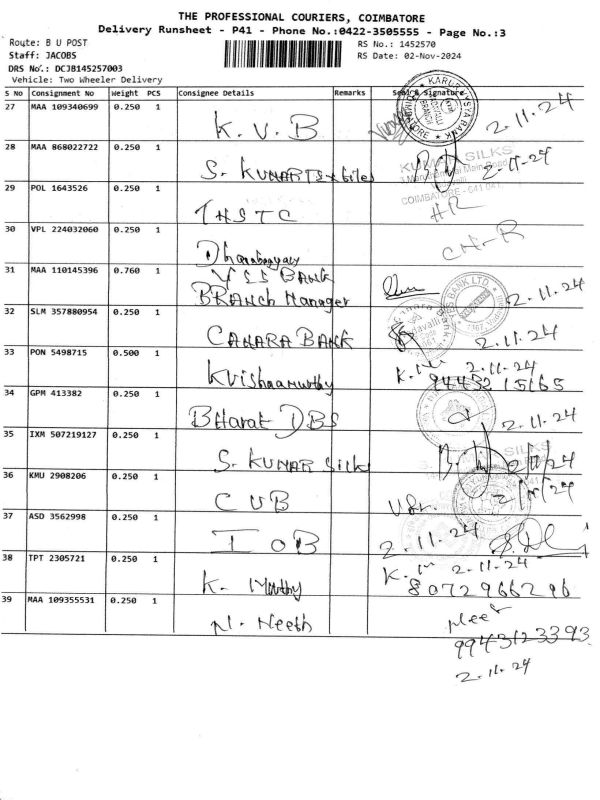 THE PROFESSIONAL COURIERS, COIMBATORE
Delivery Runsheet - P41 - Phone No.:0422-3505555 - Page No.:3
Route: B U POST
RS No.: 1452570
Staff: JACOBS
RS Date: 02-Nov-2024
DRS No.: DCJB145257003
Vehicle: Two Wheeler Delivery
S No Consignment No Weight PCS Consignee Details Remarks Seal & Signature
27 MAA 109340699 0.250 1 K.V.B 2.11.24
28 MAA 868022722 0.250 1 S. KUMAR 2-11-24
KUMAR SILKS
COIMBATORE - 641 041
29 POL 1643526 0.250 1 HR
30 VPL 224032060 0.250 1 CH-R
31 MAA 110145396 0.760 1 YES BANK
BRANCH Manager 2.11.24
32 SLM 357880954 0.250 1 CANARA BANK 2.11.24
33 PON 5498715 0.500 1 Krishnamurthy 2.11.24
9443215165
34 GPM 413382 0.250 1 Bharat DBS 2.11.24
35 IXM 507219127 0.250 1 S. KUMAR Silks 2/11/24
36 KMU 2908206 0.250 1 CUB 2/11/24
37 ASD 3562998 0.250 1 IOB 2.11.24
38 TPT 2305721 0.250 1 K. Murthy 2.11.24
8072966296
39 MAA 109355531 0.250 1 N. Neeth
9943123393
2.11.24